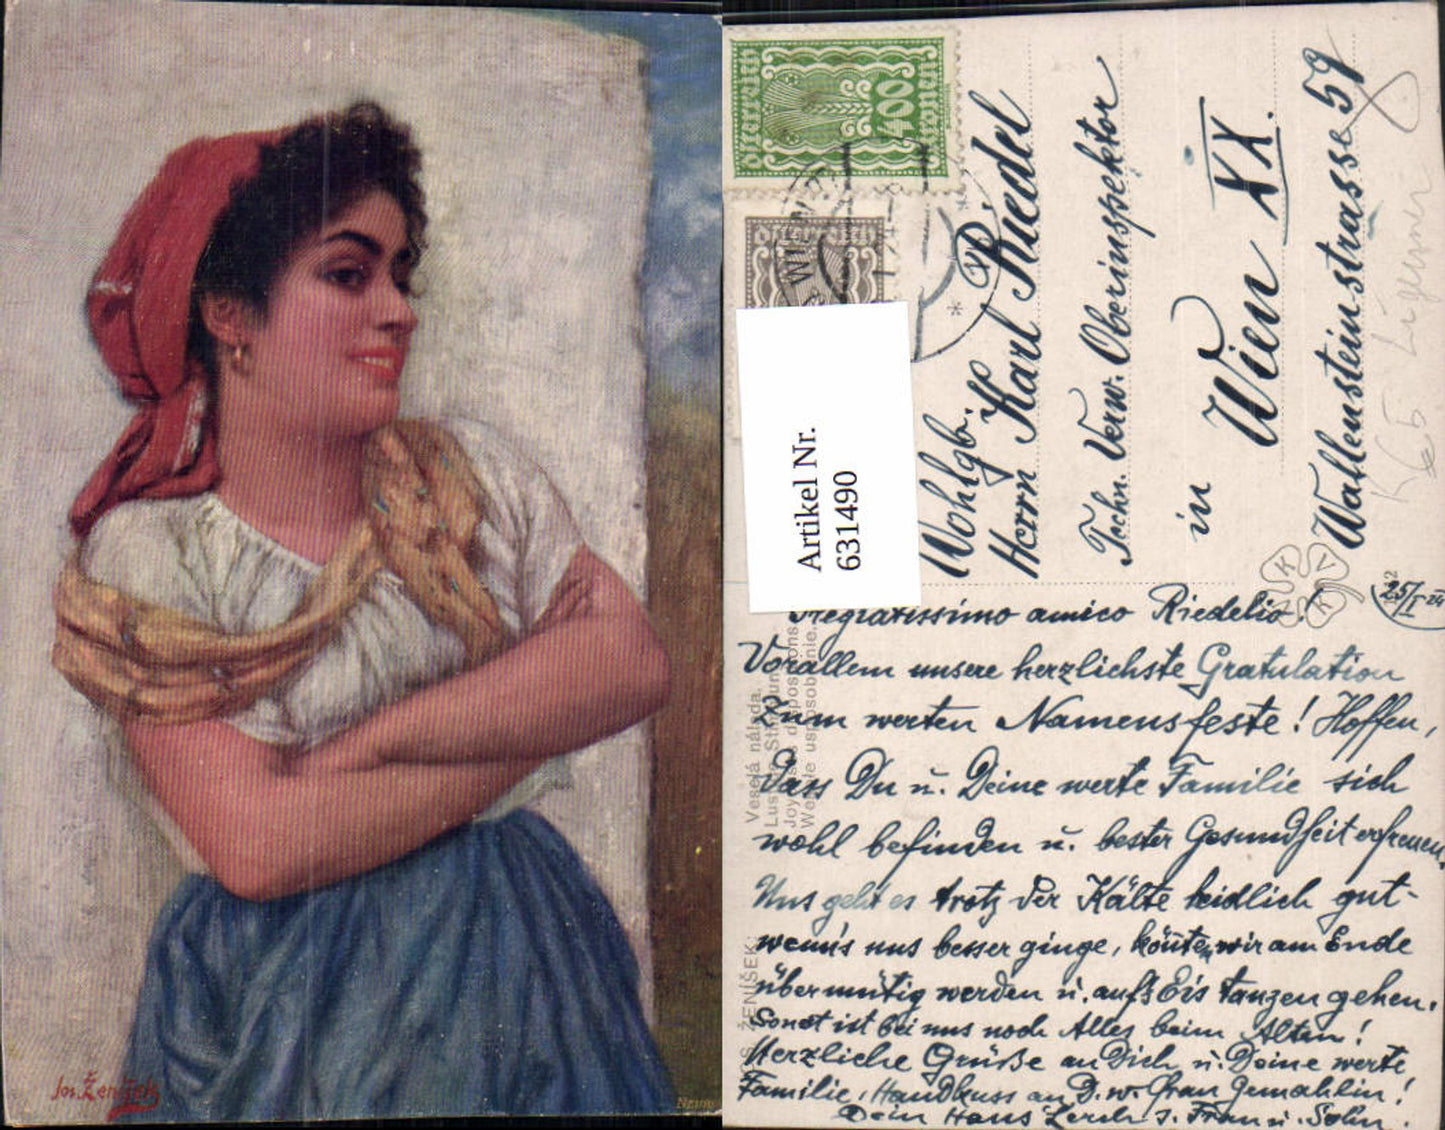 Jos. Ženíšek
Österreich
400
Kronen
Österreich
WIEN
Artikel Nr.
631490
Wohlgb.
Herrn Karl Riedel
Techn. Verw. Oberinspektor
in Wien XX.
Wallensteinstrasse 59
K K V
25/I 24
Pregiatissimo amico Riedelio!
Vorallem unsere herzlichste Gratulation
zum werten Namensfeste! Hoffen,
dass Du u. Deine werte Familie sich
wohl befinden u. bester Gesundheit erfreuen.
Uns geht es trotz der Kälte leidlich gut-
wenn's uns besser ginge, könnten wir am Ende
übermütig werden u. auf's Eis tanzen gehen.
Sonst ist bei uns noch Alles beim Alten!
Herzliche Grüße an Dich u. Deine werte
Familie, Handkuss an D. w. Frau Gemahlin!
Dein Hans Lerch s. Frau u. Sohn.
JOS. ŽENÍŠEK:
Veselá nálada.